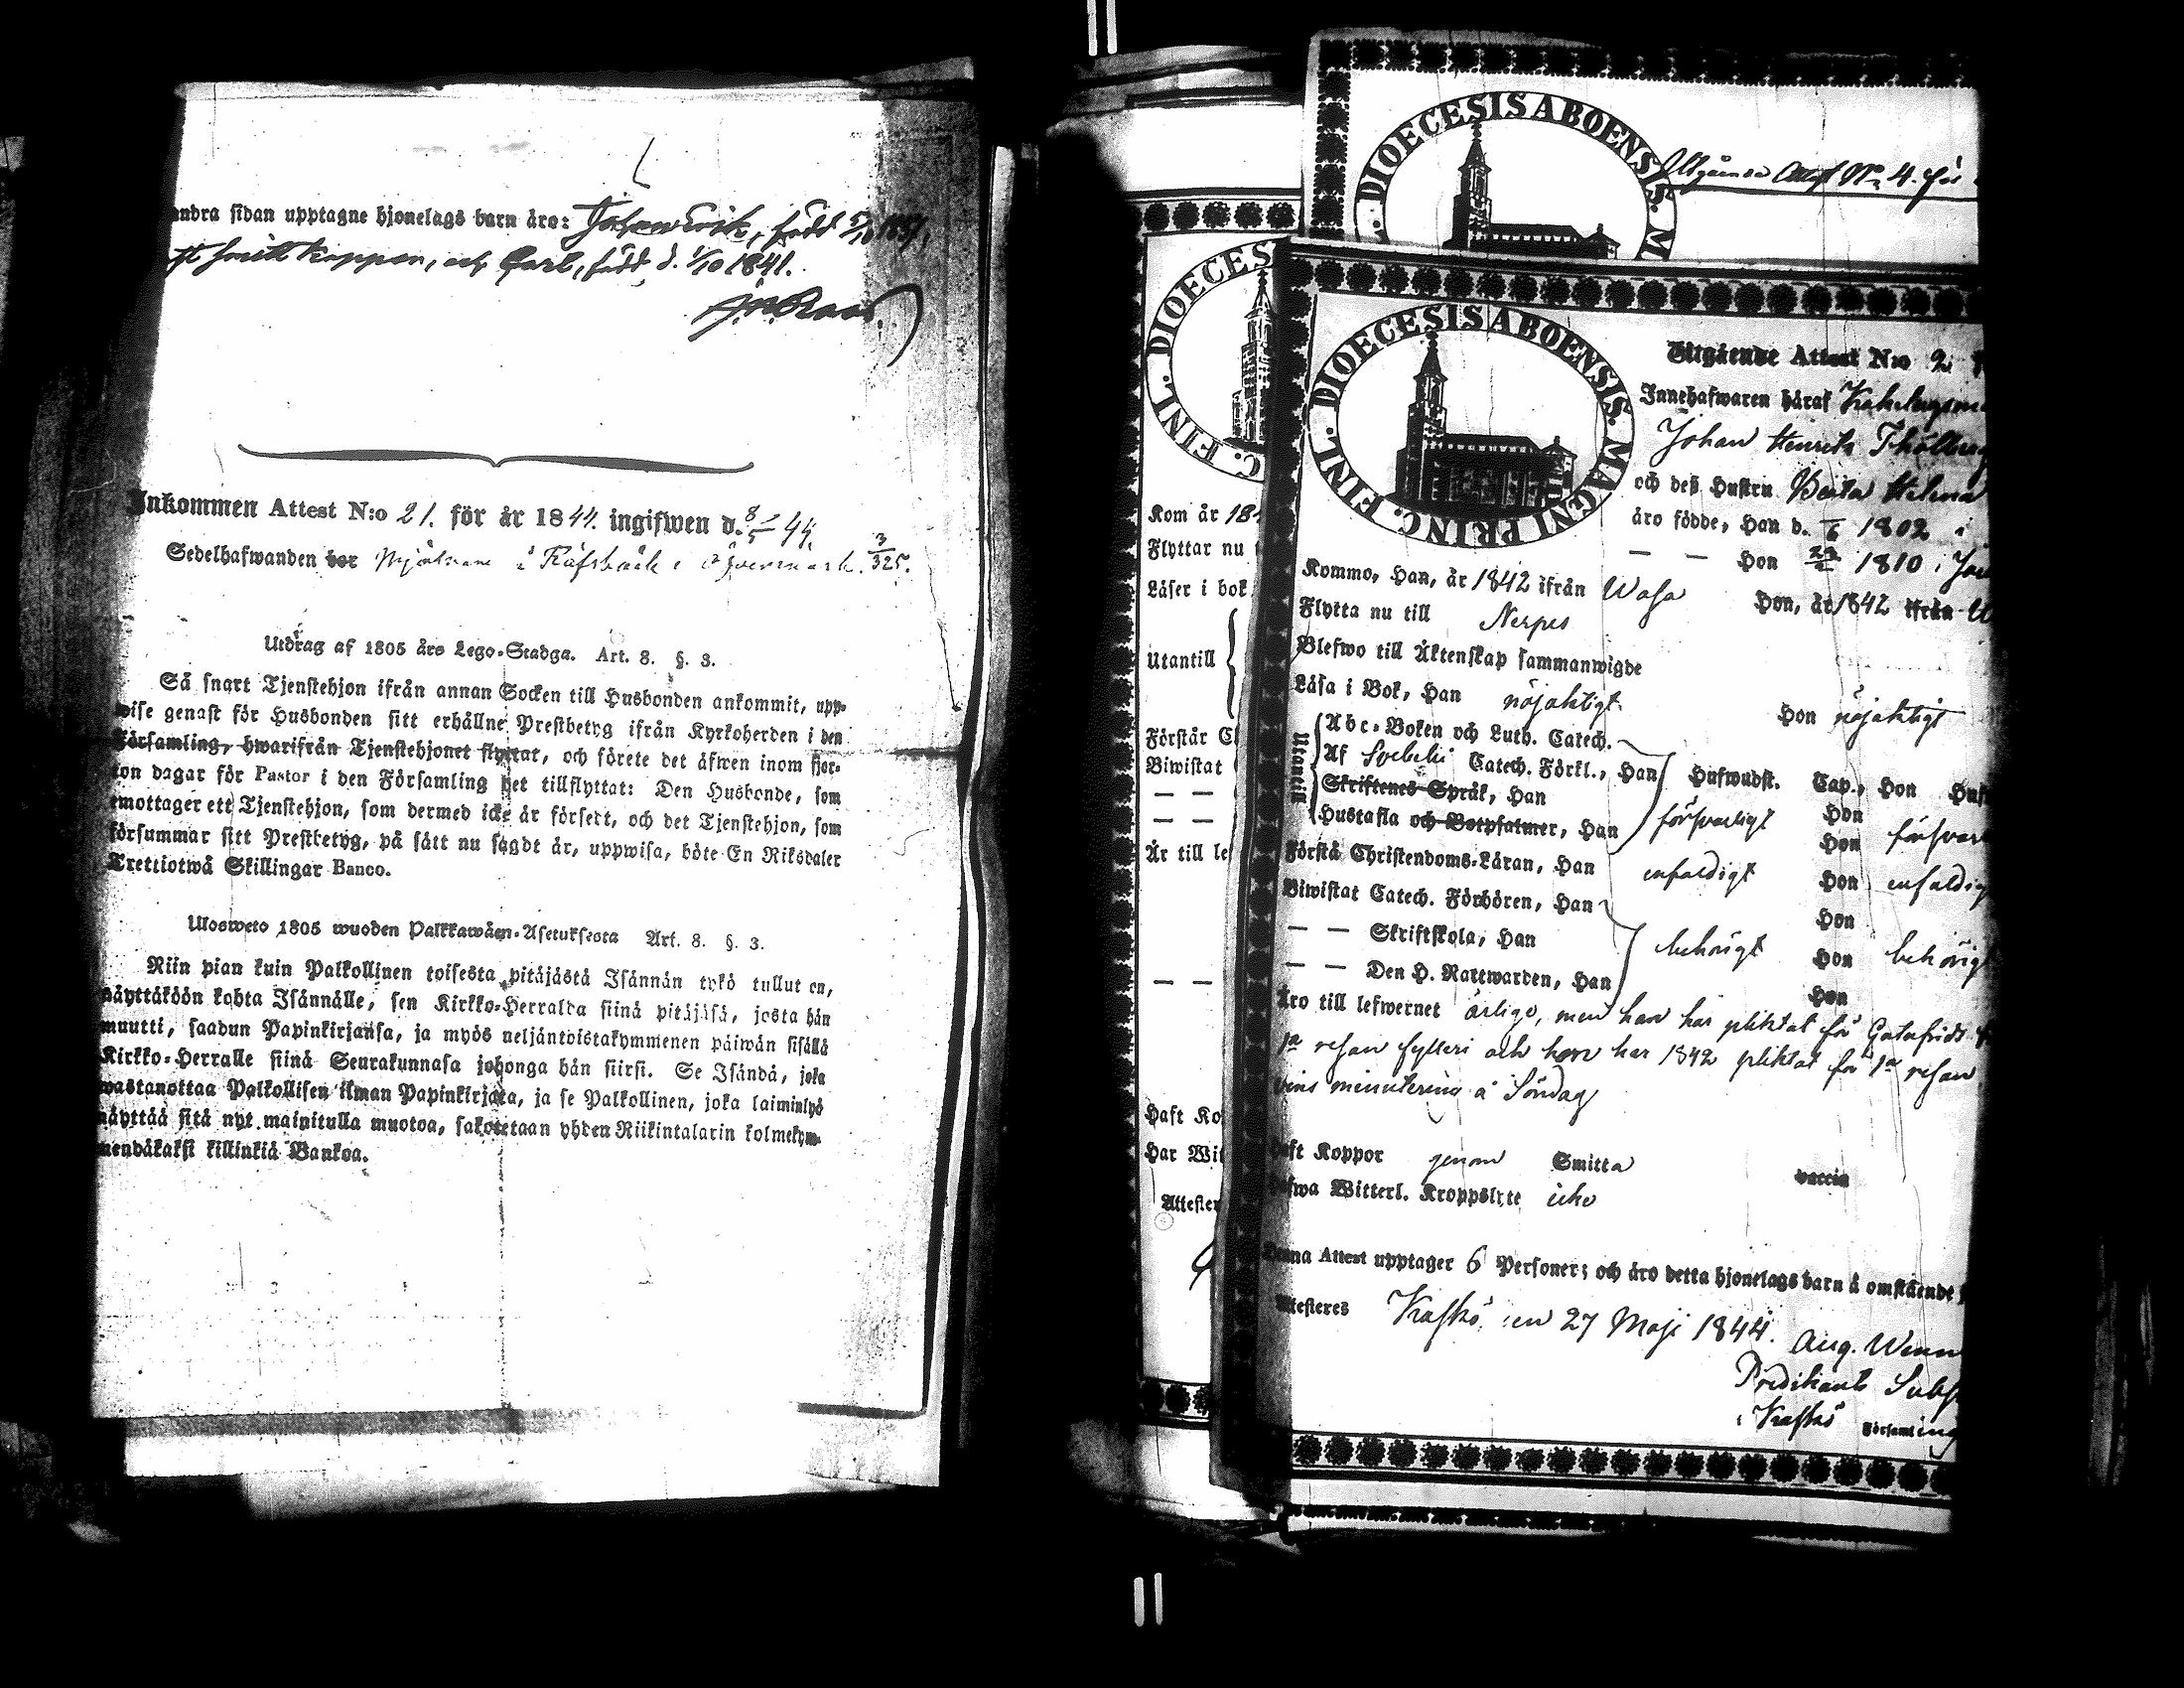 andra sidan upptagne hjonelags barn äro: Johan Erik, född 5/10 1837,
haft smittkoppor, och Carl, född d. 1/10 1841.
Inkommen Attest N:o 21. för år 1844. ingifwen d. 8/5 44.
Sedelhafwanden bor Mjölnare i Räfsbäck i Öfvermark. 3/325.
Utdrag af 1805 års Lego-Stadga. Art. 8. §. 3.
Så snart Tjenstehjon ifrån annan Socken till Husbonden ankommit, upp-
wise genast för Husbonden sitt erhållne Prestbetyg ifrån Kyrkoherden i den
Församling, hwarifrån Tjenstehjonet flyttat, och förete det äfwen inom fjor-
ton dagar för Pastor i den Församling det tillflyttat: Den Husbonde, som
emottager ett Tjenstehjon, som dermed icke är försedt, och det Tjenstehjon, som
försummar sitt Prestbetyg, på sätt nu sagdt är, uppwisa, böte En Riksdaler
Trettiotwå Skillingar Banco.
Ulosweto 1805 wuoden Palkkawäen-Asetuksesta Art. 8. §. 3.
Niin pian kuin Palkollinen toisesta pitäjästä Isännän tykö tullut on,
näyttäköön kohta Isännälle, sen Kirkko-Herralda siinä pitäjäsä, josta hän
muutti, saadun Papinkirjansa, ja myös neljäntoistakymmenen päiwän sisällä
Kirkko-Herralle siinä Seurakunnasa johonga hän siirsi. Se Isändä, joka
wastanottaa Palkollisen ilman Papinkirjata, ja se Palkollinen, joka laiminlyö
näyttää sitä nyt mainitulla muotoa, sakotetaan yhden Riikintalarin kolmekym-
mendäkaksi killinkiä Bankoa.
DIOECESIS ABOENSIS. M
Utgående Attest No 4. för
DIOECES
C. FINL.
Kom år 18
Flyttar nu
Läser i bok
Utantill
Förstår C
Biwistat
— —
— —
Är till le
— —
Haft Ko
Har Wit
Attester
DIOECESIS ABOENSIS. MAGNI PRINC. FINL.
Utgående Attest N:o 2
Innehafwaren häraf
Johan Henrik
och deß Hustru Helena
äro födde, Han d. 1802 i
— — Hon 1810 i
Kommo, Han, år 1842 ifrån Wasa Hon, år 1842 ifrån
Flytta nu till Nerpes
Blefwo till Äktenskap sammanwigde
Läsa i Bok, Han nöjaktigt Hon nöjaktigt
Utantill
Abc-Boken och Luth. Catech.
Af Svebelii Catech. Förkl., Han Hufwudst. Cap., Hon Huf
Skriftenes Språk, Han Hon
Hustafla och Botpsalmer, Han försvarligt Hon försvar
Förstå Christendoms-Läran, Han enfaldigt Hon enfaldig
Biwistat Catech. Förhören, Han Hon
— — Skriftskola, Han behörigt Hon behörigt
— — Den H. Nattwarden, Han Hon
Äro till lefwernet ärlige, men han har pliktat för
1a resan fylleri och hon har 1842 pliktat för 1a resan
vins minutering å Söndag
Haft Koppor genom Smitta vaccin
Hafwa Witterl. Kroppslyte icke
Denna Attest upptager 6 Personer; och äro detta hjonelags barn å omstående
Attesteres Kaskö den 27 Maji 1844.
Aug. Wenn
Predikants Subst
i Kaskö Församling